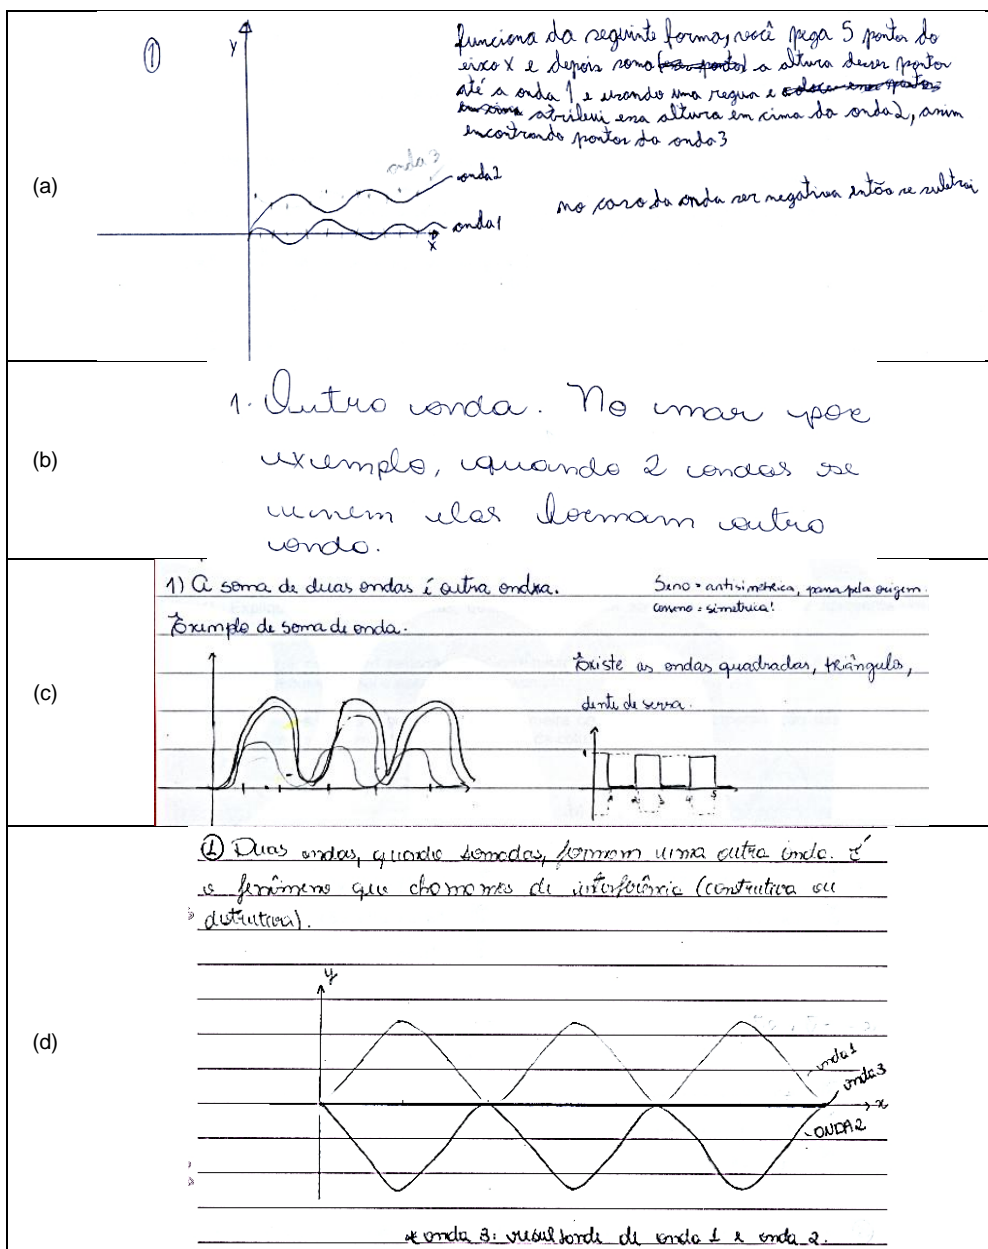 (a)
1
y
funciona da seguinte forma, você pega 5 pontos do
eixo x e depois soma a altura desses pontos
até a onda 1 e usando uma regua e
atribui essa altura em cima da onda 2, assim
encontrando pontos da onda 3
onda 3
onda 2
onda 1
x
no caso da onda ser negativa então se subtrai
(b)
1. Outra onda. No mar por
exemplo, quando 2 ondas se
unem elas formam outra
onda.
(c)
1) A soma de duas ondas é outra onda.
Seno = antisimétrica, passa pela origem.
cosseno = simetrica!
Exemplo de soma de onda.
Existe as ondas quadradas, triângulo,
dente de serra.
1 2 3 4 5
(d)
1 Duas ondas, quando somadas, formam uma outra onda. É
o fenômeno que chamamos de interferência (construtiva ou
destrutiva).
y
onda 1
onda 3
x
ONDA 2
* onda 3: resultante de onda 1 e onda 2.